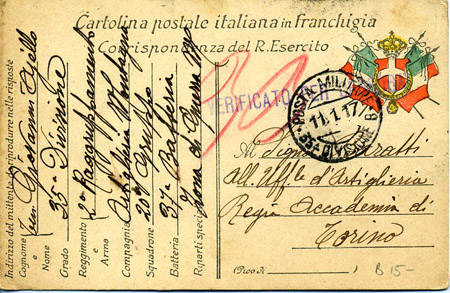 Cartolina postale italiana in franchigia
Corrispondenza del R. Esercito
VERIFICATO PER
POSTA MILITARE
11.1.17
35ª DIVISIONE B
Al Sign.
All. Uff.le d'Artiglieria
Regia Accademia di
Torino
(Prov. di )
B 15-
Indirizzo del mittente da riprodurre nelle risposte
Cognome e Nome Giovanni
Grado
35ª Divisione
Reggimento e Arma 2º Raggruppamento
Artiglieria
Compagnia
Squadrone 20º Gruppo
Batteria 37ª Batteria
Riparti speciali Zona di Guerra